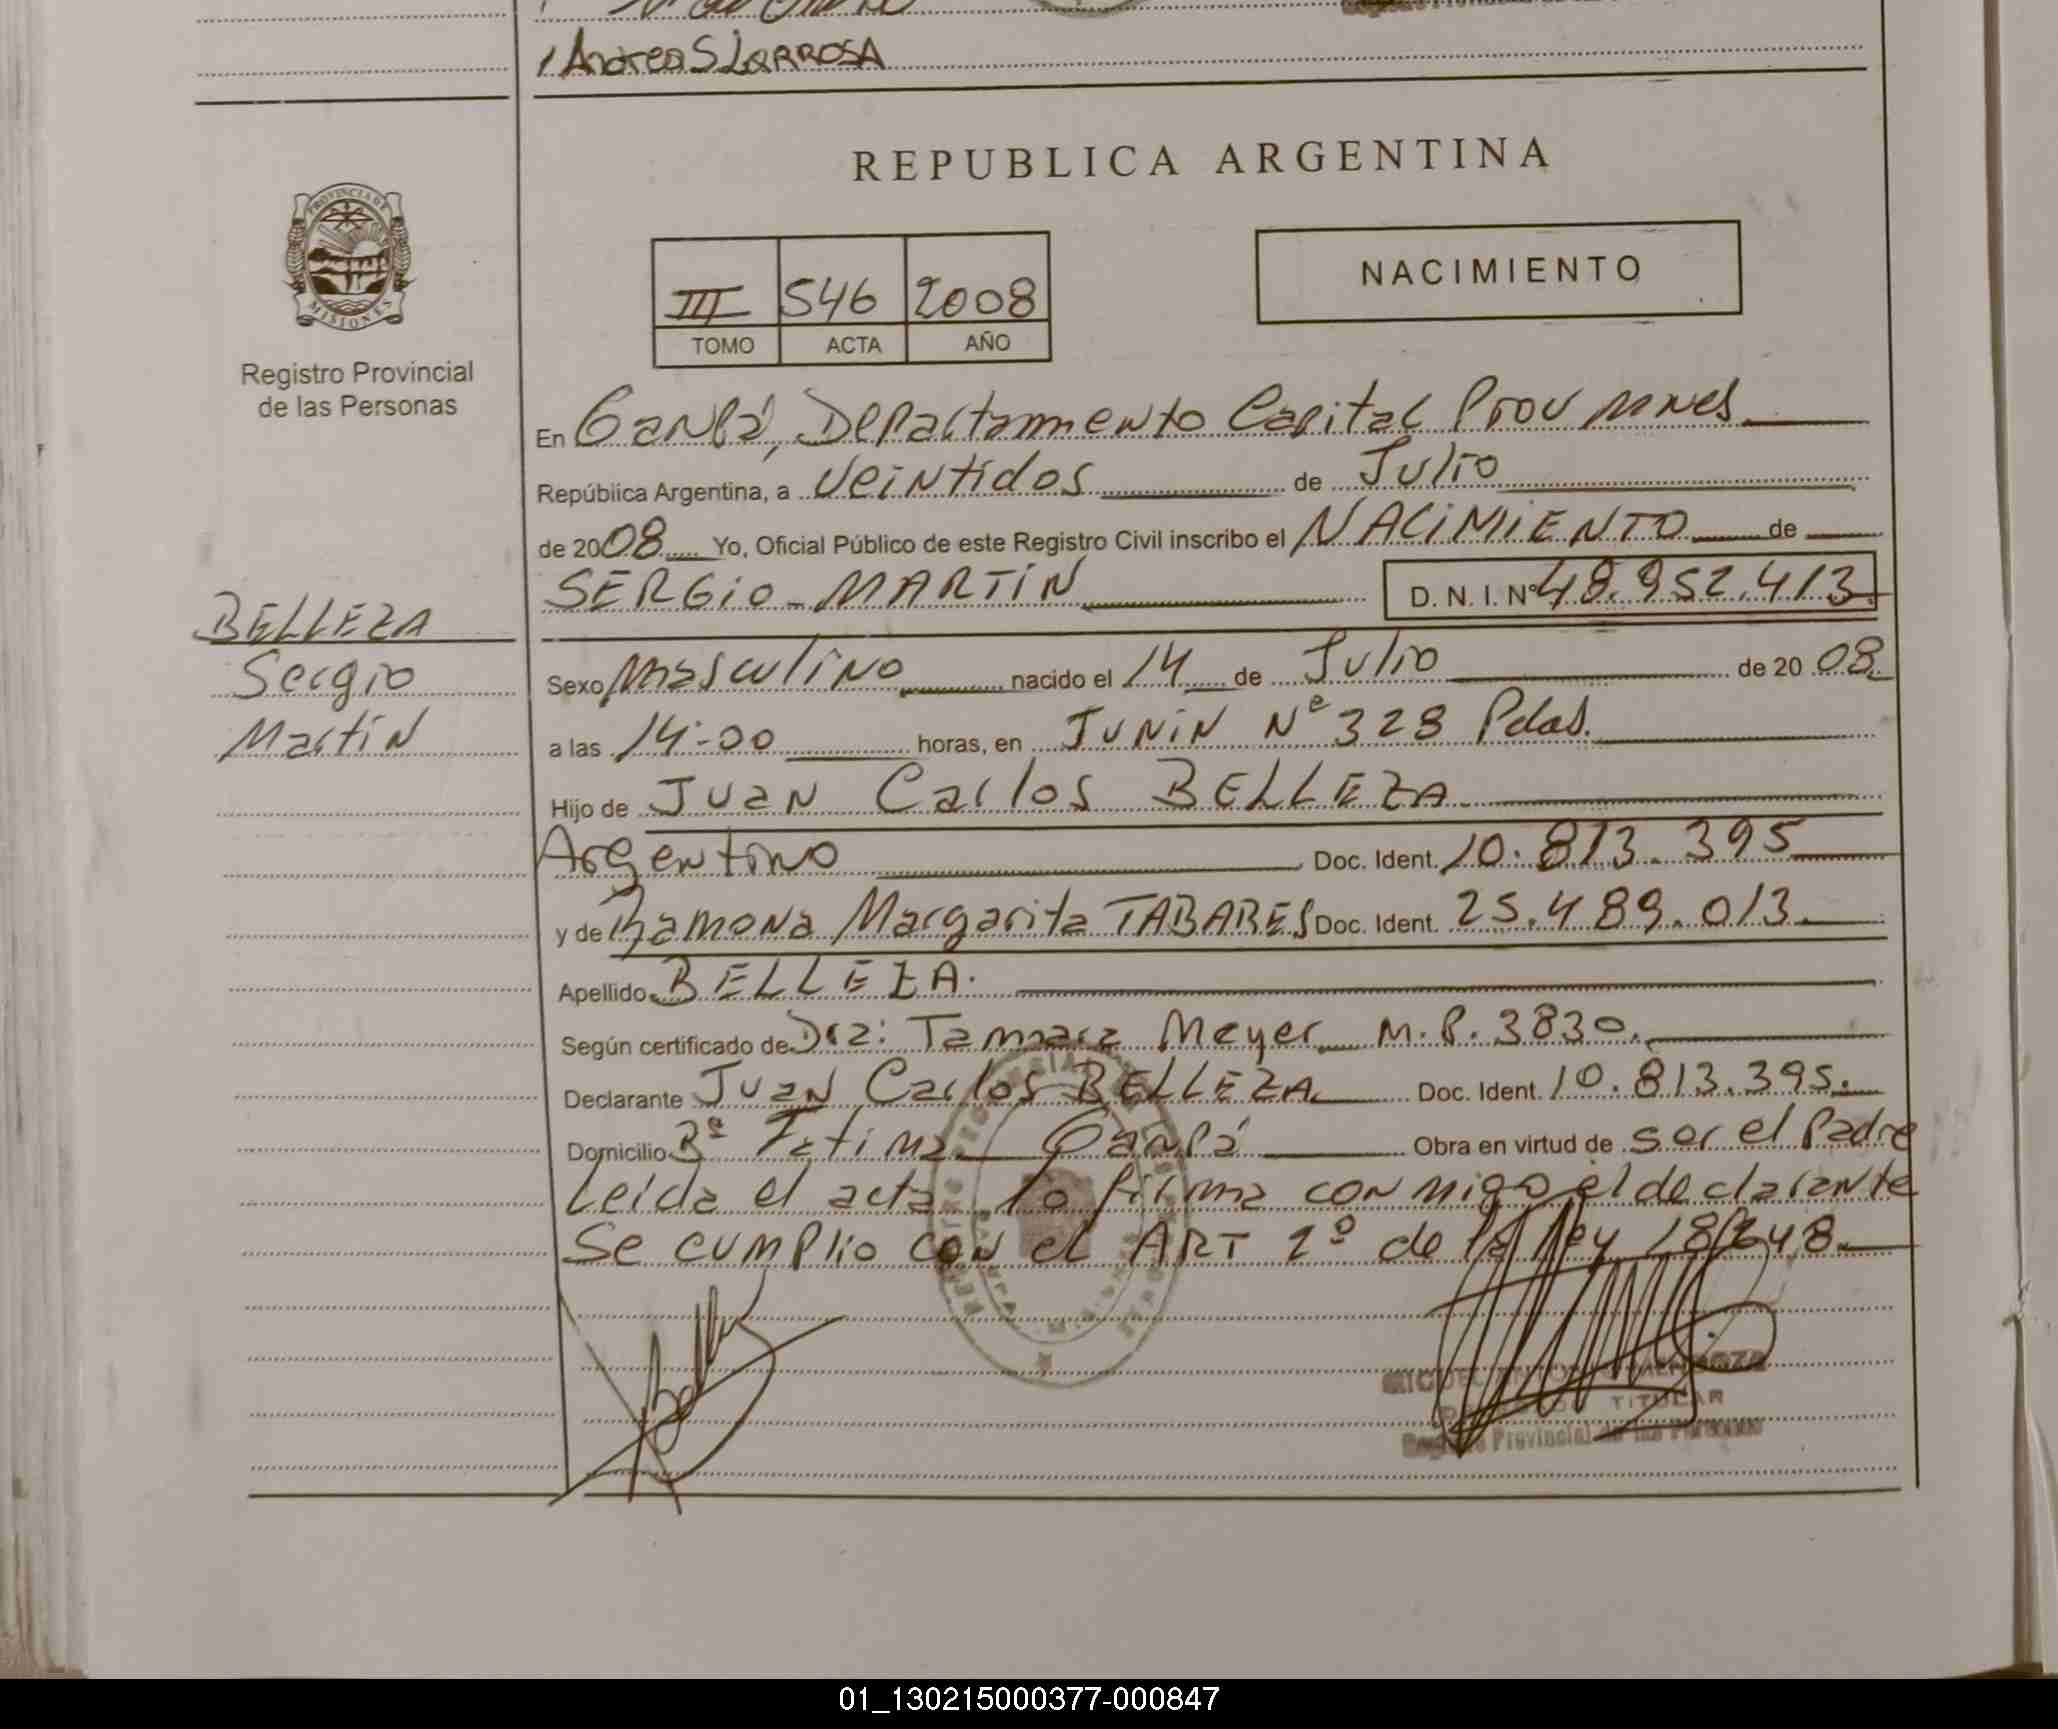 Andrea S LARROSA
REPUBLICA ARGENTINA
PROVINCIA DE
MISIONES
Registro Provincial
de las Personas
III 546 2008
TOMO ACTA AÑO
NACIMIENTO
En Garupá, Departamento Capital Prov Mnes
República Argentina, a veintidos de Julio
de 2008 Yo, Oficial Público de este Registro Civil inscribo el NACIMIENTO de
SERGIO MARTIN D. N. I. Nº 48.952.413
BELLEZA
Sergio
Martin
Sexo masculino nacido el 14 de Julio de 2008.
a las 14:00 horas, en JUNIN Nº 328 Pdas.
Hijo de Juan Carlos BELLEZA
Argentino Doc. Ident. 10.813.395
y de Ramona Margarita TABARES Doc. Ident. 25.489.013.
Apellido BELLEZA.
Según certificado de Dra: Tamara Meyer M.P. 3830.
Declarante Juan Carlos BELLEZA Doc. Ident. 10.813.395.
Domicilio Bº Fatima Garupá Obra en virtud de ser el Padre
Leida el acta la firma conmigo el declarante
Se cumplio con el ART 2º de la ley 18248.
TITULAR
Registro Provincial de las Personas
01_130215000377-000847